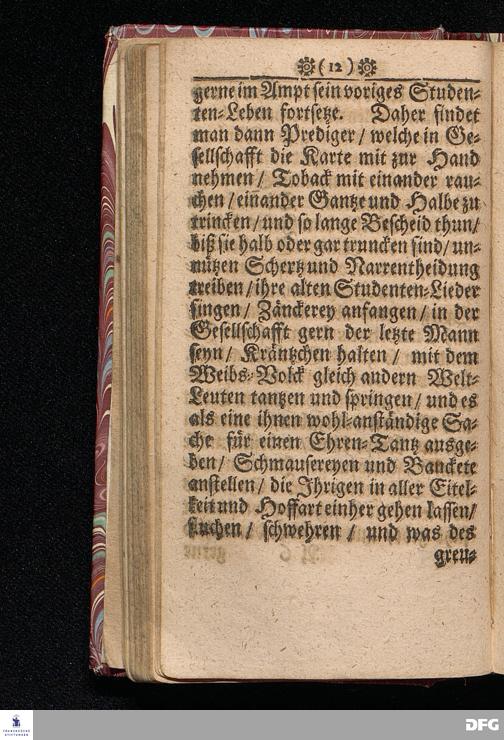 ( 12 )
gerne im Ampt sein voriges Studen-
ten-Leben fortsetze. Daher findet
man dann Prediger / welche in Ge-
sellschafft die Karte mit zur Hand
nehmen / Toback mit einander rau-
chen / einander Gantze und Halbe zu
trincken / und so lange Bescheid thun /
biß sie halb oder gar truncken sind / un-
nützen Schertz und Narrentheidung
treiben / ihre alten Studenten-Lieder
singen / Zänckerey anfangen / in der
Gesellschafft gern der letzte Mann
seyn / Kräntzchen halten / mit dem
Weibs-Volck gleich andern Welt-
Leuten tantzen und springen / und es
als eine ihnen wohl-anständige Sa-
che für einen Ehren-Tantz ausge-
ben / Schmausereyen und Banckete
anstellen / die Ihrigen in aller Eitel-
keit und Hoffart einher gehen lassen /
fluchen / schwehren / und was des
greu-
FRANCKESCHE
STIFTUNGEN
DFG